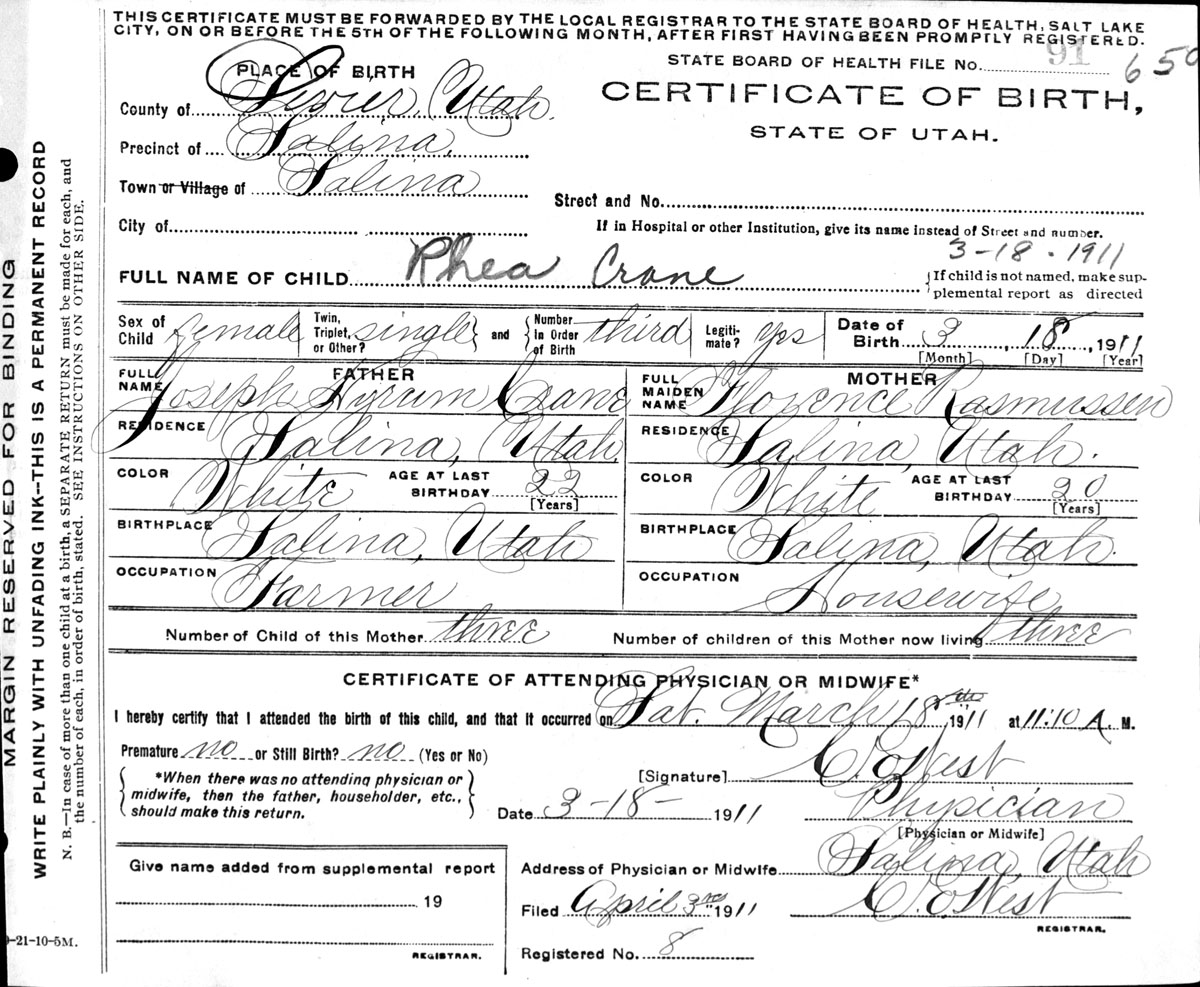 THIS CERTIFICATE MUST BE FORWARDED BY THE LOCAL REGISTRAR TO THE STATE BOARD OF HEALTH, SALT LAKE
CITY, ON OR BEFORE THE 5TH OF THE FOLLOWING MONTH, AFTER FIRST HAVING BEEN PROMPTLY REGISTERED.
STATE BOARD OF HEALTH FILE No. 91 650
PLACE OF BIRTH
CERTIFICATE OF BIRTH,
STATE OF UTAH.
County of Sevier, Utah.
Precinct of Salina,
Town or Village of Salina
Street and No.
City of
If in Hospital or other Institution, give its name instead of Street and number.
3-18-1911
FULL NAME OF CHILD Rhea Crane
If child is not named, make sup-
plemental report as directed
Sex of Child female Twin, Triplet, or Other? single and Number In Order of Birth third Legiti-mate? yes Date of Birth 3, 18, 1911
[Month] [Day] [Year]
FATHER
FULL NAME Joseph Hyrum Crane
RESIDENCE Salina, Utah,
COLOR White AGE AT LAST BIRTHDAY 22
[Years]
BIRTHPLACE Salina, Utah
OCCUPATION Farmer
MOTHER
FULL MAIDEN NAME Florence Rasmussen
RESIDENCE Salina, Utah.
COLOR White AGE AT LAST BIRTHDAY 20
[Years]
BIRTHPLACE Salina, Utah.
OCCUPATION Housewife
Number of Child of this Mother three Number of children of this Mother now living three
CERTIFICATE OF ATTENDING PHYSICIAN OR MIDWIFE*
I hereby certify that I attended the birth of this child, and that it occurred on Sat. March 18th 1911 at 11:10 A. M.
Premature no or Still Birth? no (Yes or No)
*When there was no attending physician or
midwife, then the father, householder, etc.,
should make this return.
[Signature] C. O. West
Date 3-18- 1911 Physician
[Physician or Midwife]
Give name added from supplemental report
19
REGISTRAR.
Address of Physician or Midwife Salina, Utah
Filed April 3rd 1911 C. O. West
REGISTRAR.
Registered No. 8
-21-10-5M.
MARGIN RESERVED FOR BINDING
WRITE PLAINLY WITH UNFADING INK--THIS IS A PERMANENT RECORD
N. B.—In case of more than one child at a birth, a SEPARATE RETURN must be made for each, and
the number of each, in order of birth, stated. SEE INSTRUCTIONS ON OTHER SIDE.